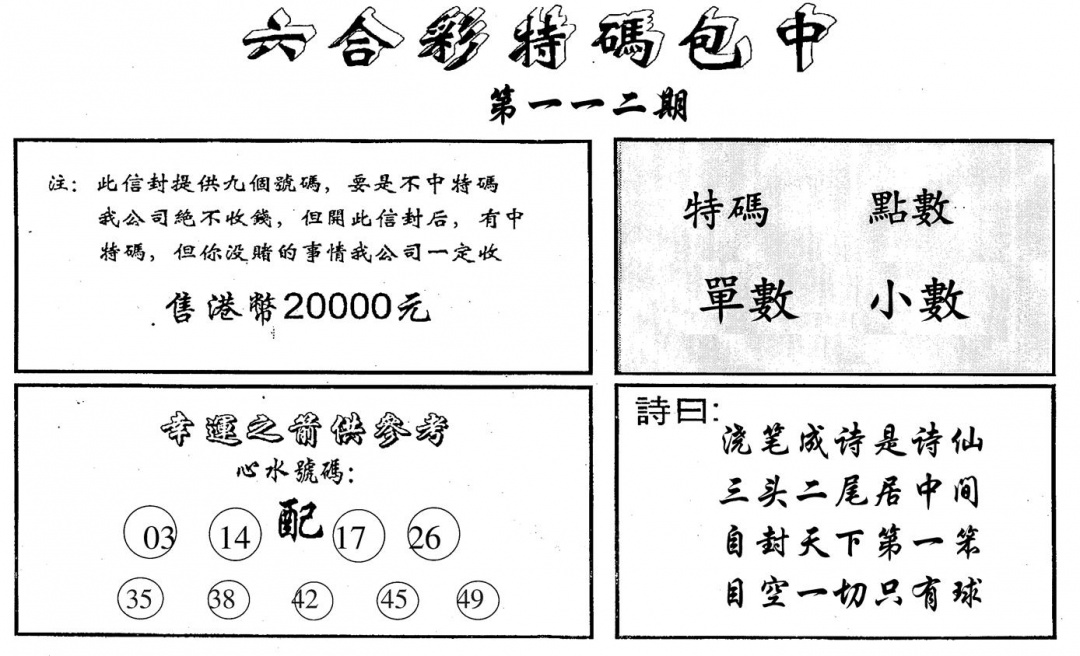 六合彩特碼包中
第一一二期
注：此信封提供九個號碼，要是不中特碼
我公司絶不收錢，但開此信封后，有中
特碼，但你没賭的事情我公司一定收
售港幣20000元
特碼 點數
單數 小數
幸運之箭供參考
心水號碼：
配
03 14 17 26
35 38 42 45 49
詩曰：
浇笔成诗是诗仙
三头二尾居中间
自封天下第一笨
目空一切只有球